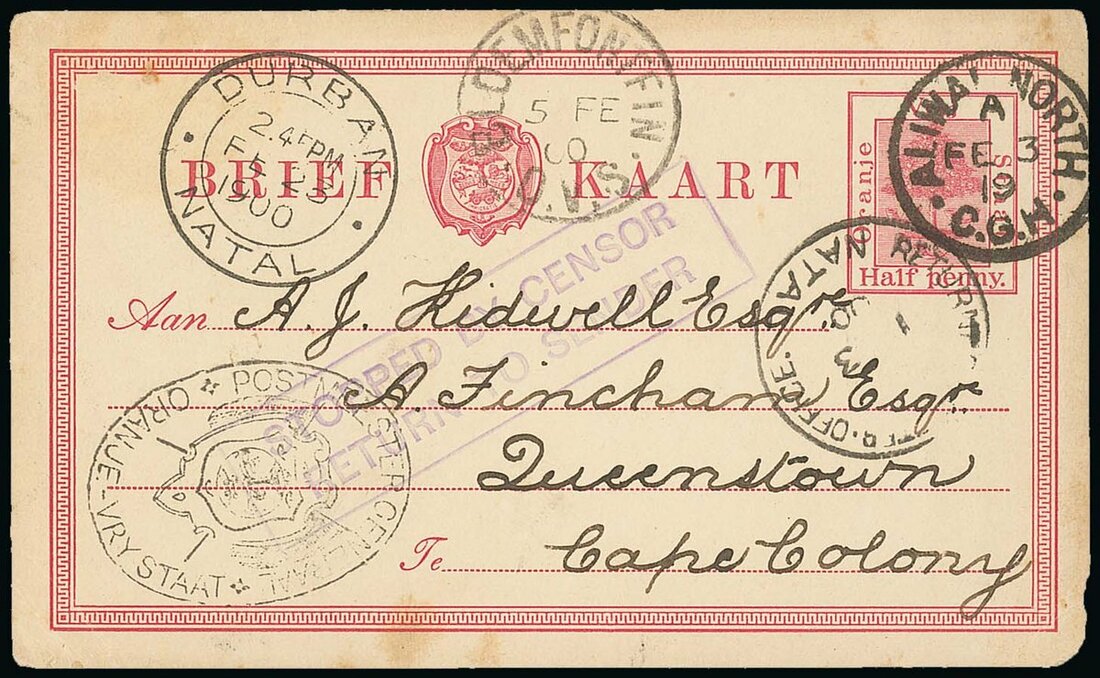 DURBAN
2.45PM
FE 23
1900
NATAL
BLOEMFONTEIN.
5 FE
00
O.V.S.
ALIWAL NORTH
A
FE 3
19
C.G.H.
BRIEF KAART
Oranje
Half penny.
RETURN LETTER OFFICE. NATAL
STOPPED BY CENSOR
RETURN TO SENDER
Aan A. J. Kidwell Esqr.
A. Fincham Esqr.
Queenstown
Te Cape Colony
POSTMEESTER-GENERAAL
ORANJE-VRY STAAT